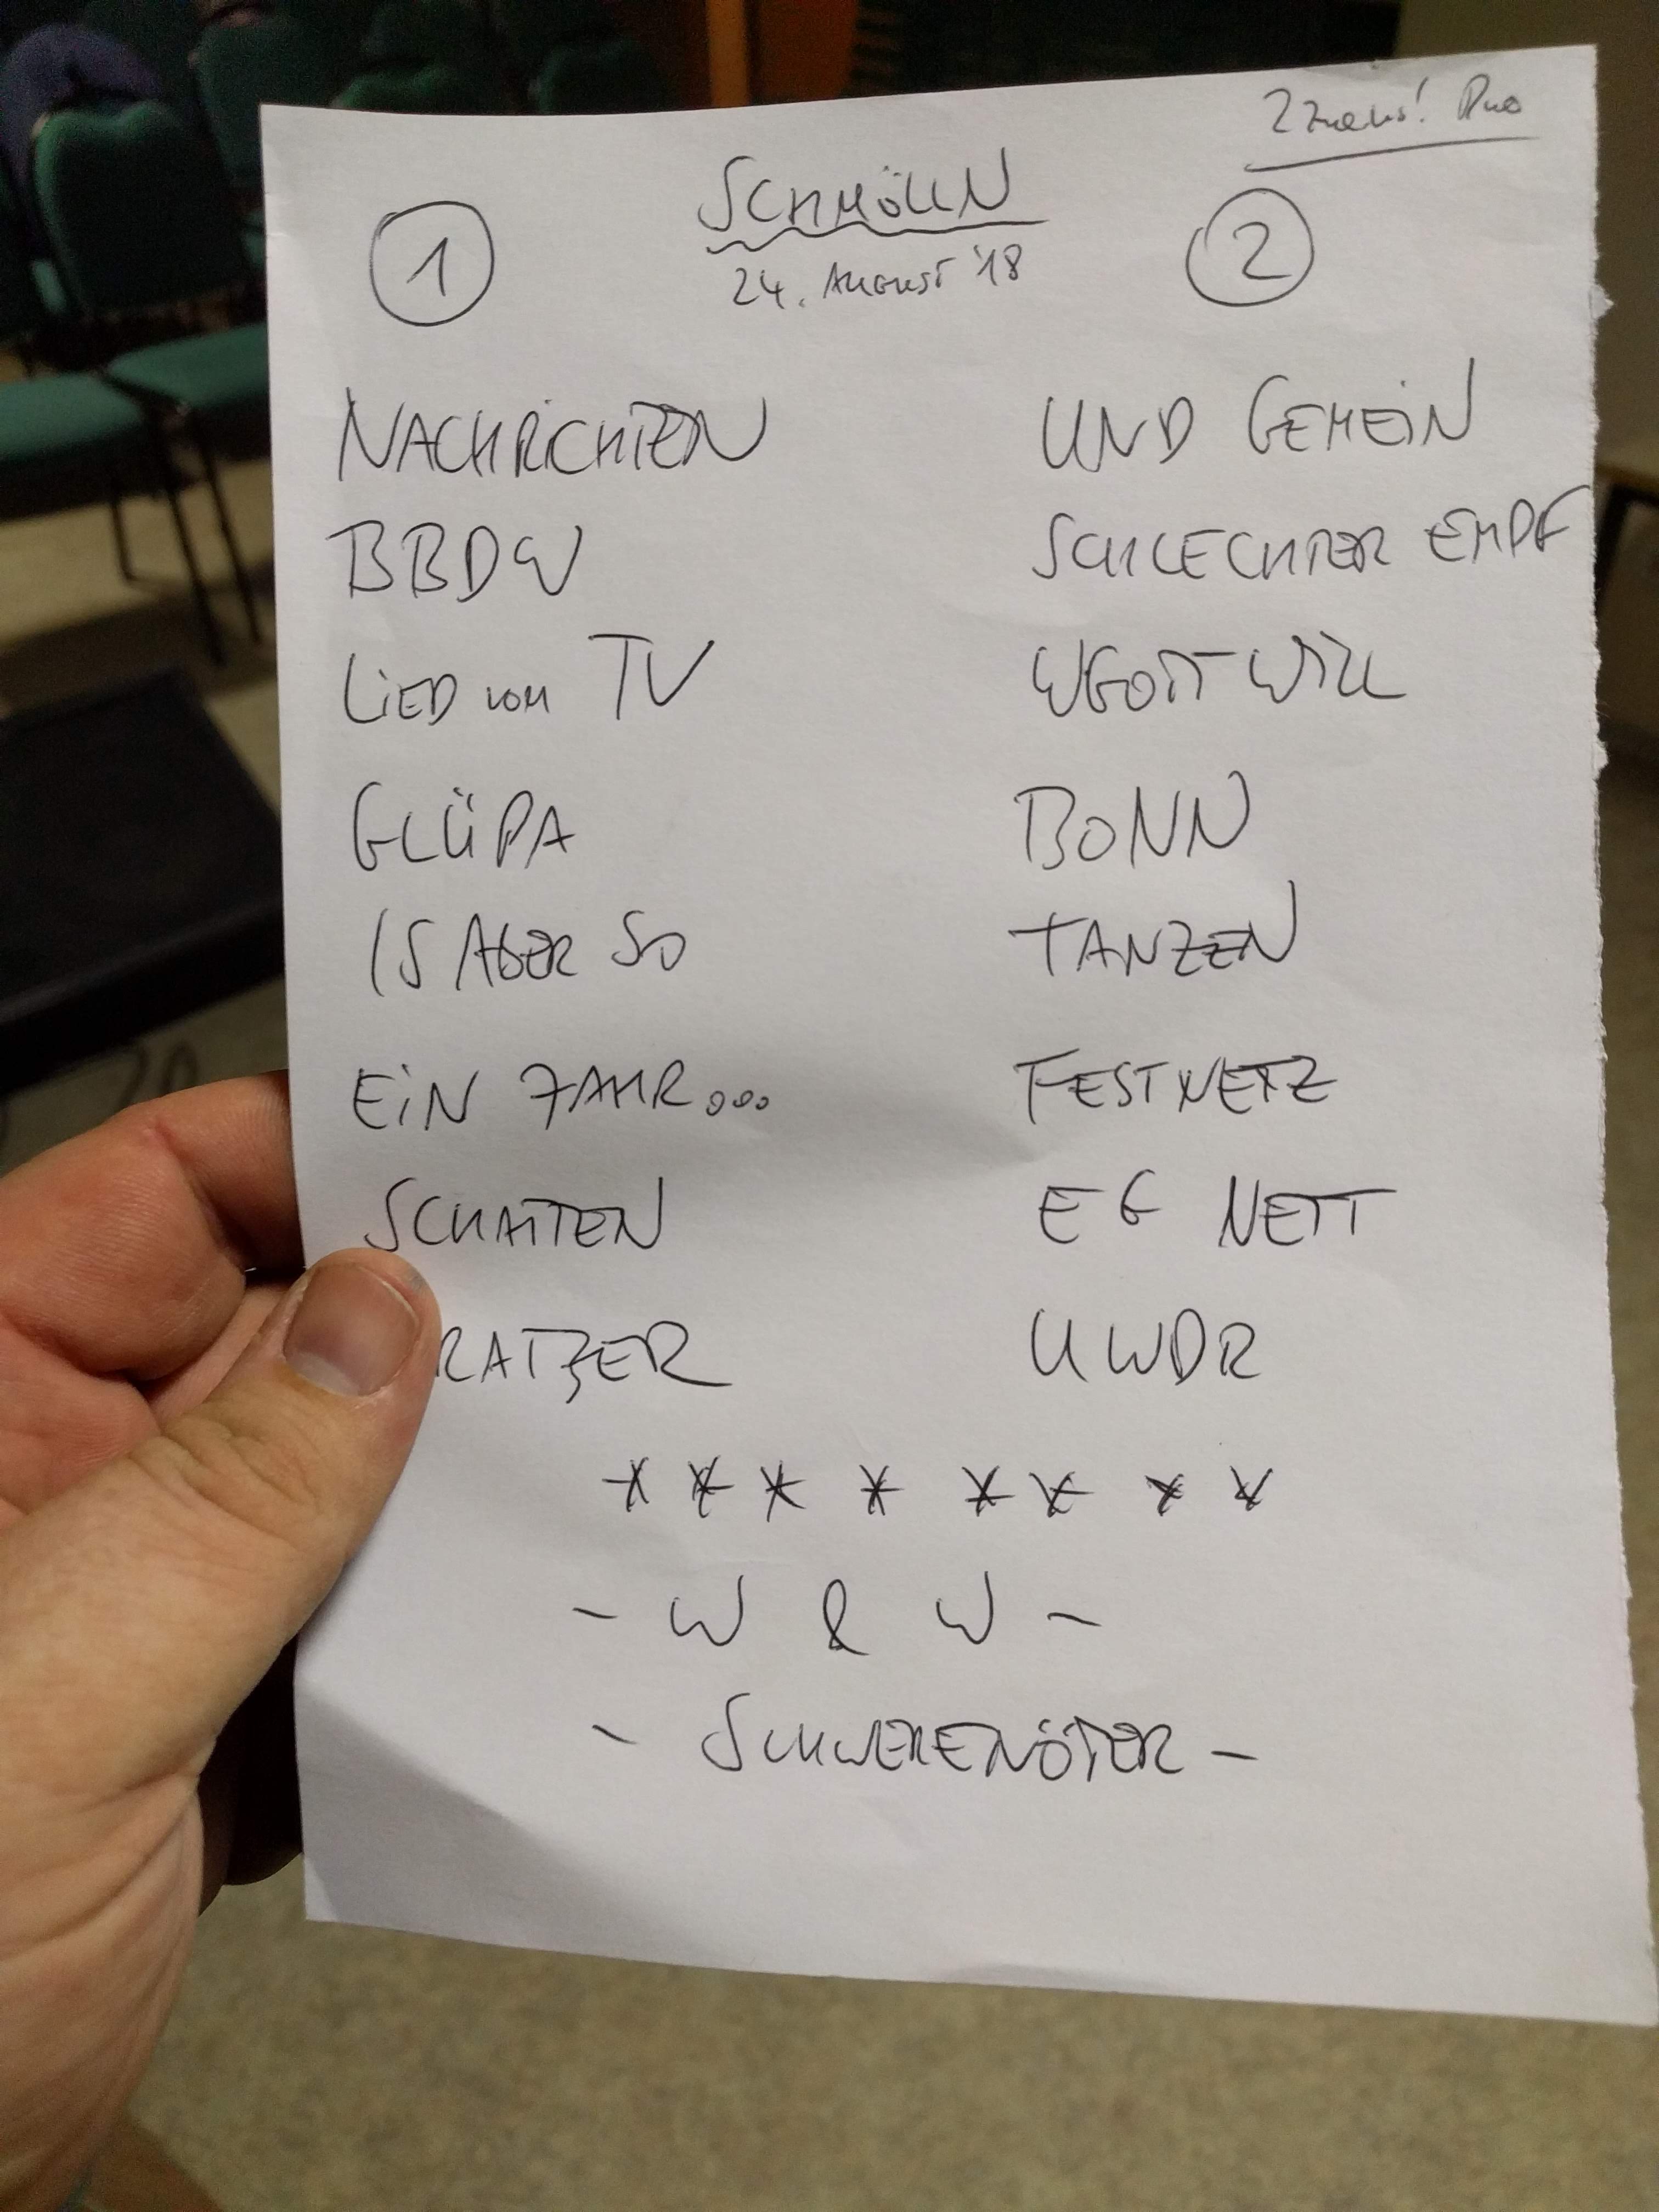 SCHMÖLLN
24. AUGUST '18
1
NACHRICHTEN
BBDW
LIED vom TV
GLÜPA
IS ABER SO
EIN JAHR...
SCHATTEN
RATZER
2
UND GEMEIN
SCHLECHTER EMPF
WGOTT WILL
BONN
TANZEN
FESTNETZ
EG NETT
UWDR
* * * * * * * *
- W & W -
- SCHWERENÖTER -